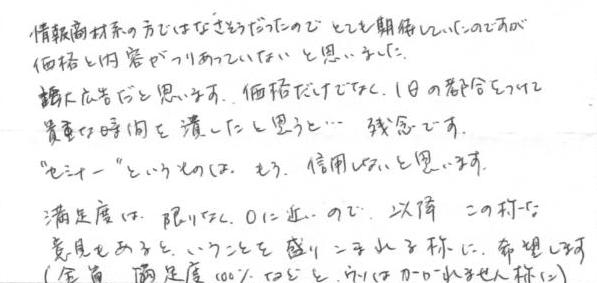 情報商材系の方ではなさそうだったので とても期待していたのですが
価格と内容がつりあっていないと思いました.
誇大広告だと思います. 価格だけでなく、1日の都合をつけて
貴重な時間を潰したと思うと… 残念です.
"セミナー"というものは. もう. 信用しないと思います.
満足度は. 限りなく. 0に近いので. 以降 この様な
意見もあると. いうことを 盛りこまれる様に. 希望します
(全員 満足度100% などと. は れません様に)